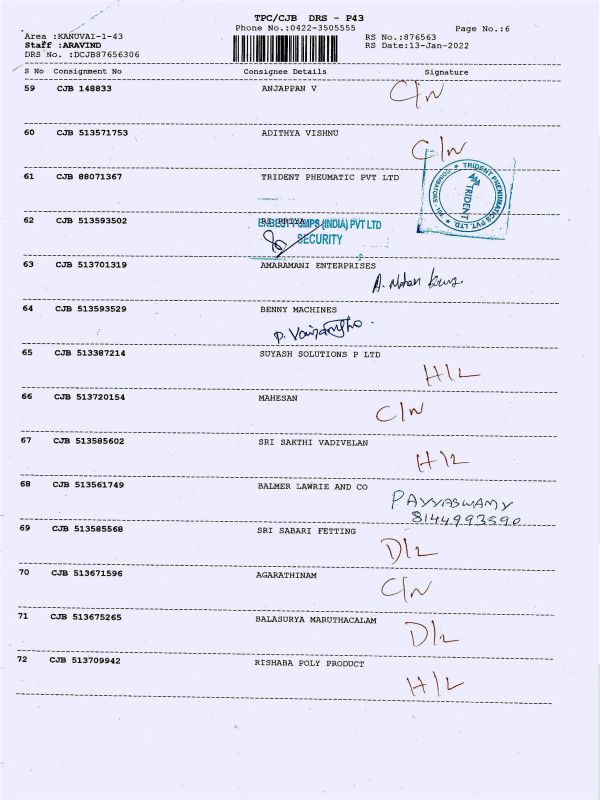 TPC/CJB DRS - P43
Phone No.:0422-3505555
Page No.:6
Area :KANUVAI-1-43
RS No.:876563
Staff :ARAVIND
RS Date:13-Jan-2022
DRS No. :DCJB87656306
S No Consignment No Consignee Details Signature
59 CJB 148833 ANJAPPAN V C/N
60 CJB 513571753 ADITHYA VISHNU C/N
61 CJB 88071367 TRIDENT PHEUMATIC PVT LTD
TRIDENT PNEUMATICS PVT. LTD.
TRIDENT
62 CJB 513593502
PUMPS (INDIA) PVT LTD
SECURITY
63 CJB 513701319 AMARAMANI ENTERPRISES
A. Mohan
64 CJB 513593529 BENNY MACHINES
65 CJB 513387214 SUYASH SOLUTIONS P LTD
H/L
66 CJB 513720154 MAHESAN
C/N
67 CJB 513585602 SRI SAKTHI VADIVELAN
H/L
68 CJB 513561749 BALMER LAWRIE AND CO
PAYYASWAMY
8144993590
69 CJB 513585568 SRI SABARI FETTING
D/L
70 CJB 513671596 AGARATHINAM
C/N
71 CJB 513675265 BALASURYA MARUTHACALAM
D/L
72 CJB 513709942 RISHABA POLY PRODUCT
H/L